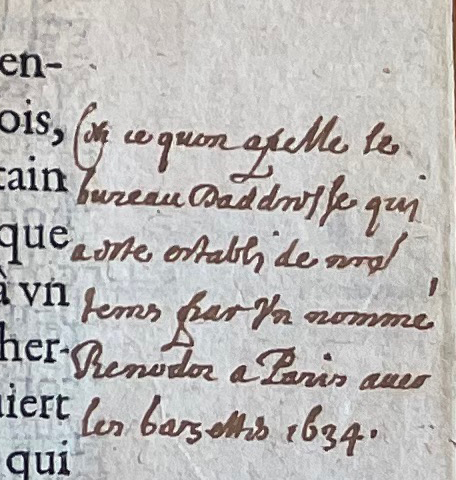 en-
ois,
tain
que
à vn
her-
uiert
qui
ce quon apelle le
bureau Daddresse qui
a este estably de
tems par Vn nommé
Renodot a Paris auec
les gazettes 1634.